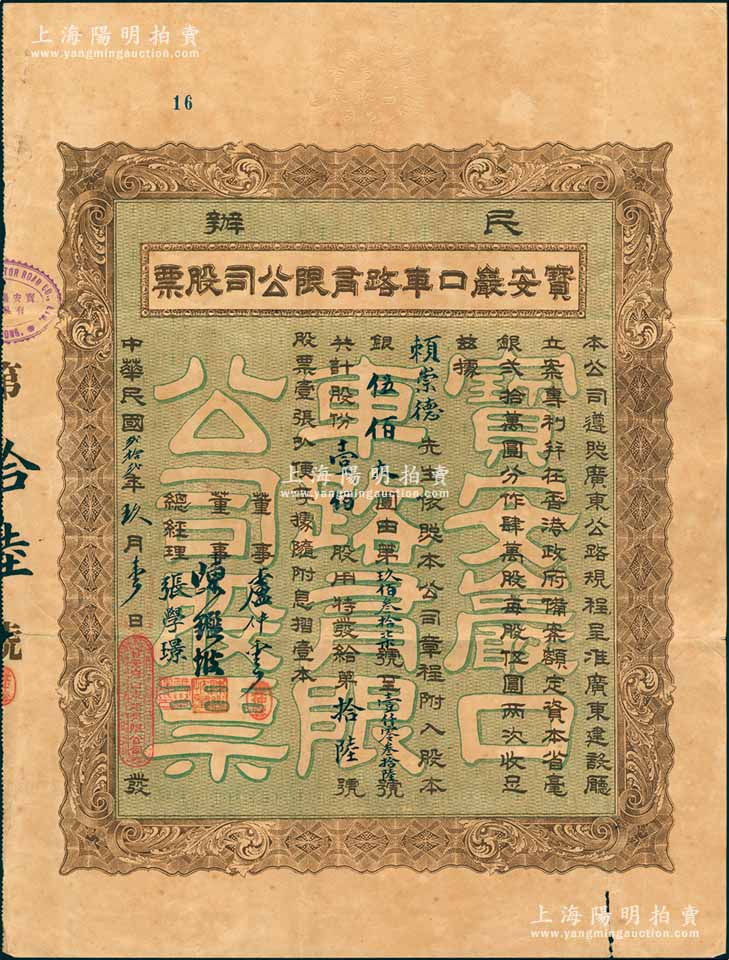 上海陽明拍賣
www.yangmingauction.com
16
民辦
寶安巖口車路有限公司股票
本公司遵照廣東公路規程呈准廣東建設廳
立案專利并在香港政府備案額定資本省毫
銀弍拾萬圓分作肆萬股每股伍圓兩次收足
茲據
賴崇德先生依照本公司章程附入股本
銀伍佰圓由第玖佰叁拾柒號至壹仟零叁拾陸號
共計股份壹佰股用特發給第拾陸號
股票壹張以便執據隨附息摺壹本
董事 盧仲雲
董事
總經理 張學璟
中華民國弍拾弍年玖月壹日發
寶安巖口車路有限公司股票
第拾陸號
上海陽明拍賣
www.yangmingauction.com